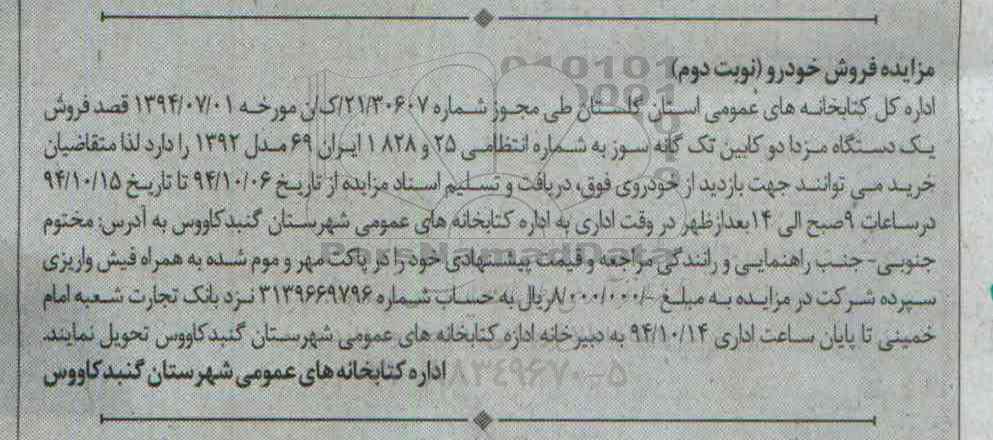 مزایده فروش خودرو (نوبت دوم)
اداره کل کتابخانه های عمومی استان گلستان طی مجوز شماره ۲۱/۳۰۶۰۷/ک/ن مورخه ۱۳۹۴/۰۷/۰۱ قصد فروش
یک دستگاه مزدا دو کابین تک گانه سوز به شماره انتظامی ۲۵ و ۸۲۸ ۱ ایران ۶۹ مدل ۱۳۹۲ را دارد لذا متقاضیان
خرید می توانند جهت بازدید از خودروی فوق، دریافت و تسلیم اسناد مزایده از تاریخ ۹۴/۱۰/۰۶ تا تاریخ ۹۴/۱۰/۱۵
درساعات ۹صبح الی ۱۴بعدازظهر در وقت اداری به اداره کتابخانه های عمومی شهرستان گنبدکاووس به آدرس: مختوم
جنوبی- جنب راهنمایی و رانندگی مراجعه و قیمت پیشنهادی خود را در پاکت مهر و موم شده به همراه فیش واریزی
سپرده شرکت در مزایده به مبلغ -/۸/۰۰۰/۰۰۰ریال به حساب شماره ۳۱۳۹۶۶۹۷۹۶ نزد بانک تجارت شعبه امام
خمینی تا پایان ساعت اداری ۹۴/۱۰/۱۴ به دبیرخانه اداره کتابخانه های عمومی شهرستان گنبدکاووس تحویل نمایند.
اداره کتابخانه های عمومی شهرستان گنبدکاووس
ParsNamadData